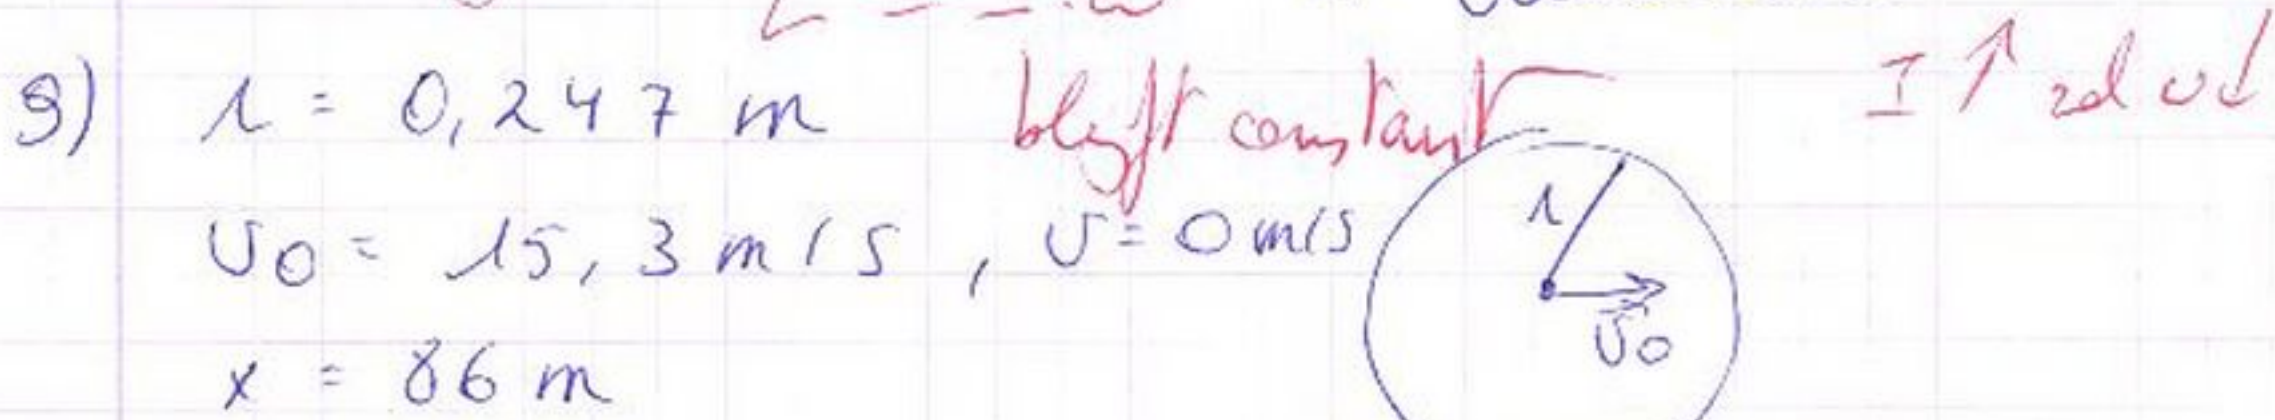 9) r = 0,247 m blijft constant I ↑ zd ω↓
v0 = 15,3 m/s , v = 0 m/s
r
v0
x = 86 m